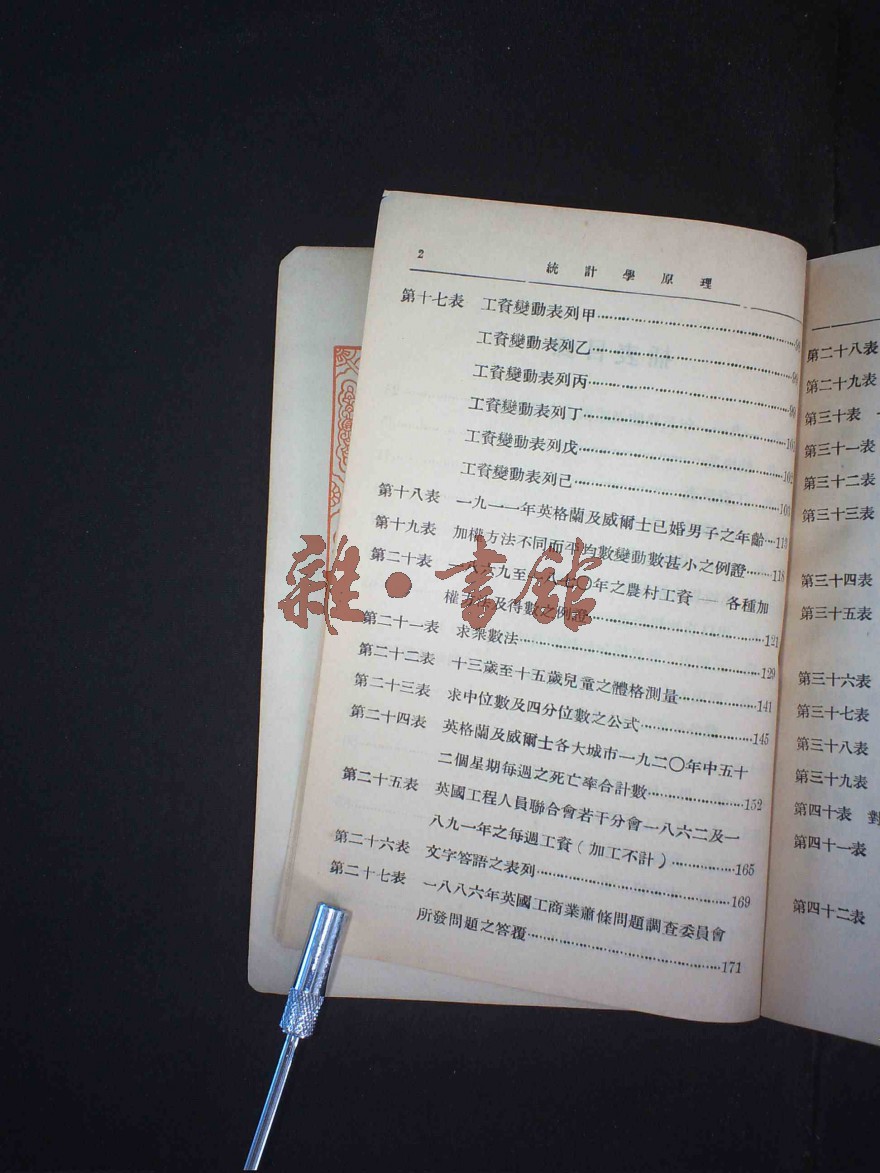 2
統計學原理
第十七表 工資變動表列甲
工資變動表列乙
工資變動表列丙
工資變動表列丁
工資變動表列戊
工資變動表列己
第十八表 一九一一年英格蘭及威爾士已婚男子之年齡
第十九表 加權方法不同而平均數變動數甚小之例證……118
第二十表 一八六九至一八七〇年之農村工資——各種加
權方法及得數之例證……121
第二十一表 求衆數法……129
第二十二表 十三歲至十五歲兒童之體格測量……141
第二十三表 求中位數及四分位數之公式……145
第二十四表 英格蘭及威爾士各大城市一九二〇年中五十
二個星期每週之死亡率合計數……152
第二十五表 英國工程人員聯合會若干分會一八六二及一
八九一年之每週工資(加工不計)……165
第二十六表 文字答語之表列……169
第二十七表 一八八六年英國工商業蕭條問題調查委員會
所發問題之答覆……171
第二十八表
第二十九表
第三十表
第三十一表
第三十二表
第三十三表
第三十四表
第三十五表
第三十六表
第三十七表
第三十八表
第三十九表
第四十表 對
第四十一表
第四十二表
雜·書館